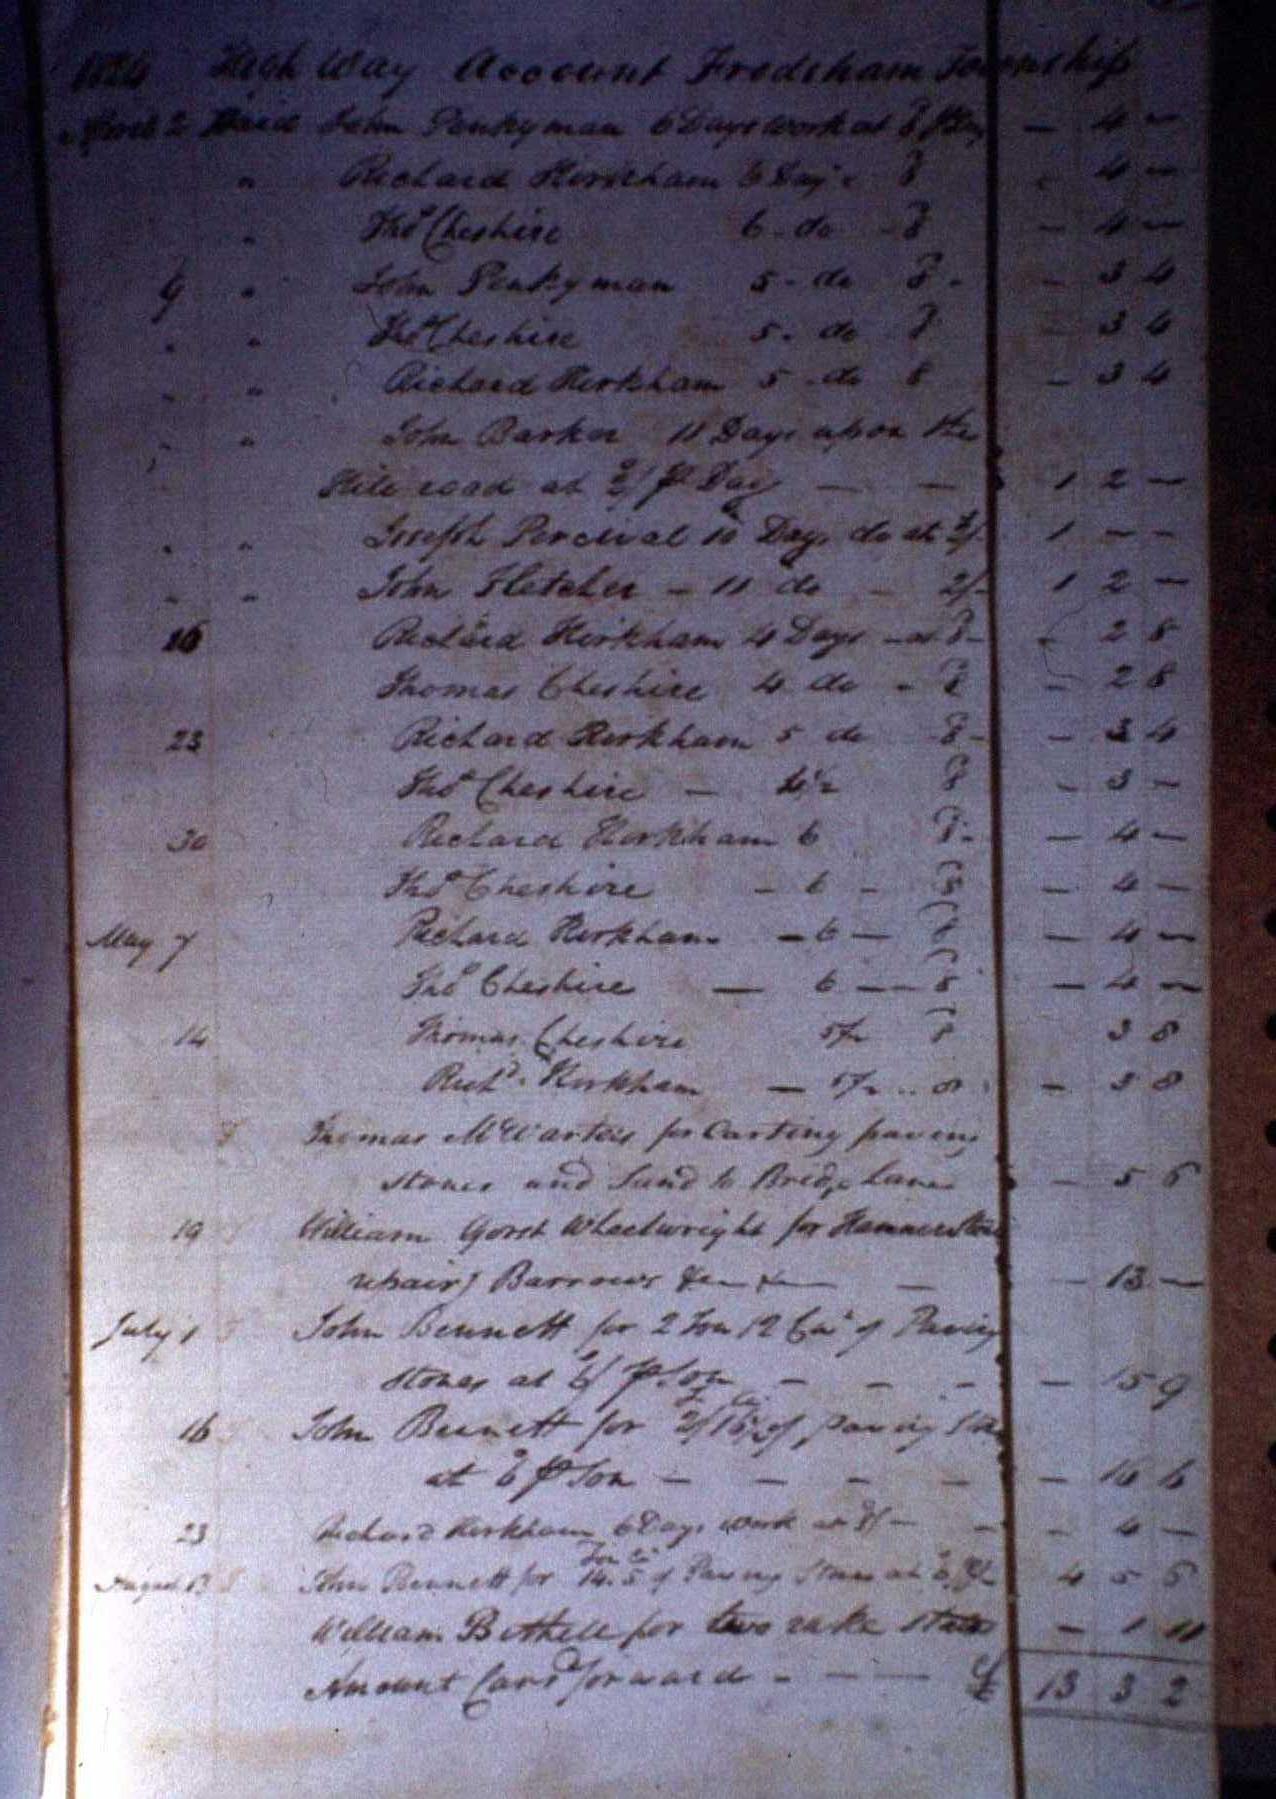 1824 High Way Account Frodsham Township
April 2 Paid John Penkyman 6 Days work at 8 p Day — 4 —
" Richard Kirkham 6 Days 8 — 4 —
" Thos Cheshire 6 - do - 8 — 4 —
9 " John Penkyman 5 - do 8 - — 3 4
" " Thos Cheshire 5 - do 8 — 3 4
" " Richard Kirkham 5 - do 8 — 3 4
" " John Barker 11 Days upon the
road at 2/ p Day — — 1 2 —
" " Joseph Percival 10 Days do at 2/- 1 — —
" " John Fletcher - 11 do - 2/- 1 2 —
16 Richard Kirkham 4 Days - at 8 - - 2 8
Thomas Cheshire 4 do - 8 — 2 8
23 Richard Kirkham 5 do 8 - — 3 4
Thos Cheshire — 4½ 8 - 3 —
30 Richard Kirkham 6 8 - — 4 —
Thos Cheshire — 6 - 8 — 4 —
May 7 Richard Kirkham — 6 — 8 — 4 —
Thos Cheshire — 6 — 8 — 4 —
14 Thomas Cheshire 5½ 8 3 8
Richd Kirkham — 5½ .. 8 — 3 8
Thomas for Carting paving
stones and Sand to Bridge Lane — 5 6
19 William Gorst Wheelwright for
repairs Barrows &c — — 13 —
July 1 John Bennett for 2 Ton 12 Cwt of Paving
stones at 6/ p Ton - - - — 15 9
16 John Bennett for 2/15 of paving
at 6 p Ton — — — — — 16 6
23 Richard Kirkham 6 Days work at 8/- - — 4 —
August 13 John Bennett for 14 Ton 5 Cwt of Paving Stones at 6 4 5 6
William Bethell for two rake — 1 11
Amount Card forward - — — £ 13 3 2